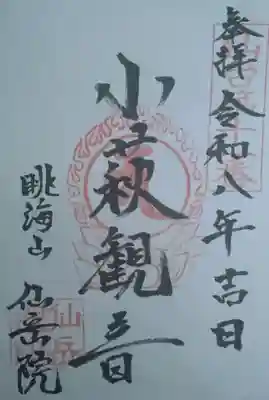 奉拝 令和八年吉日
小萩観音
眺海山 仙岳院